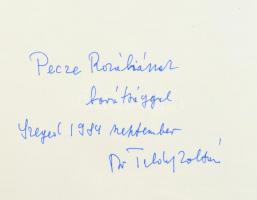 Pecze Rozáliának
barátsággal
Szeged 1984 szeptember
Dr Teleky Zoltán